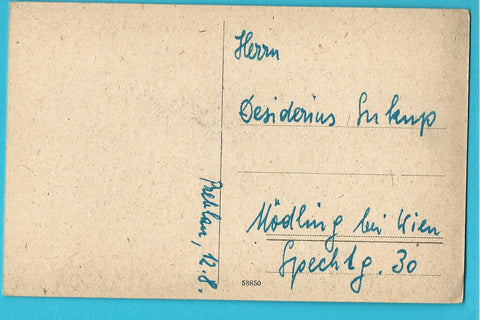 Herrn
Desiderius Sukup
Mödling bei Wien
Spechtg. 30
Preblau, 12.8.
58850